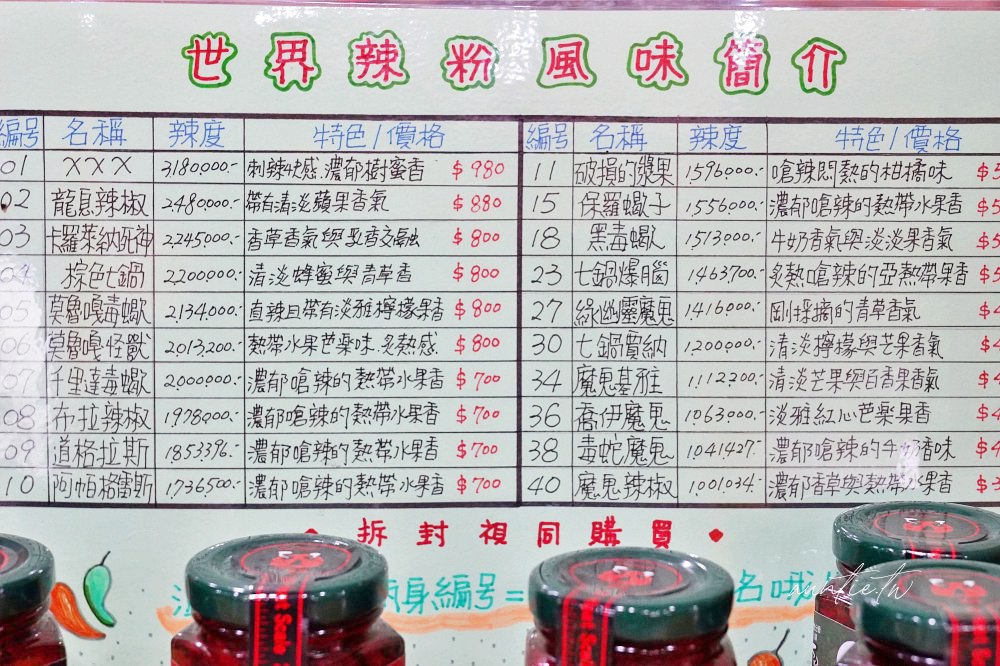 世界辣粉風味簡介
編号 名稱 辣度 特色/價格 編号 名稱 辣度 特色/價格
01 XXX 3180,000.- 刺辣快感.濃郁樹蜜香 $980 11 破損的漿果 1,596,000.- 嗆辣悶熱的柑橘味 $5
02 龍息辣椒 2,480,000.- 帶有清淡蘋果香氣 $880 15 保羅蠍子 1,556,000.- 濃郁嗆辣的熱帶水果香 $5
03 卡羅萊納死神 2,245,000.- 香草香氣與乳香交融 $800 18 黑毒蠍 1,513,000.- 牛奶香氣與淡淡果香氣 $5
04 棕色七鍋 2,200,000.- 清淡蜂蜜與青草香 $800 23 七鍋爆腦 1,463,700.- 炙熱嗆辣的亞熱帶果香 $5
05 莫魯嘎毒蠍 2,134,000.- 直辣且帶有淡雅檸檬果香 $800 27 綠幽靈魔鬼 1,416,000.- 剛採摘的青草香氣 $4
06 莫魯嘎怪獸 2,013,200.- 熱帶水果芭樂味.炙熱感. $800 30 七鍋賈納 1,200,000.- 清淡檸檬與芒果香氣 $4
07 千里達毒蠍 2,000,000.- 濃郁嗆辣的熱帶水果香 $700 34 魔鬼基雅 1,112,200.- 清淡芒果與百香果香氣 $4
08 布拉辣椒 1,978,000.- 濃郁嗆辣的熱帶水果香 $700 36 喬伊魔鬼 1,063,000.- 淡雅紅心芭樂果香 $4
09 道格拉斯 1,853,396.- 濃郁嗆辣的熱帶水果香 $700 38 毒蛇魔鬼 1,041,427.- 濃郁嗆辣的牛奶香味 $4
10 阿帕格雷斯 1,736,500.- 濃郁嗆辣的熱帶水果香 $700 40 魔鬼辣椒 1,001,034.- 濃郁香草與熱帶水果香 $3
拆封視同購買
身編号= 名哦
auntie.tw